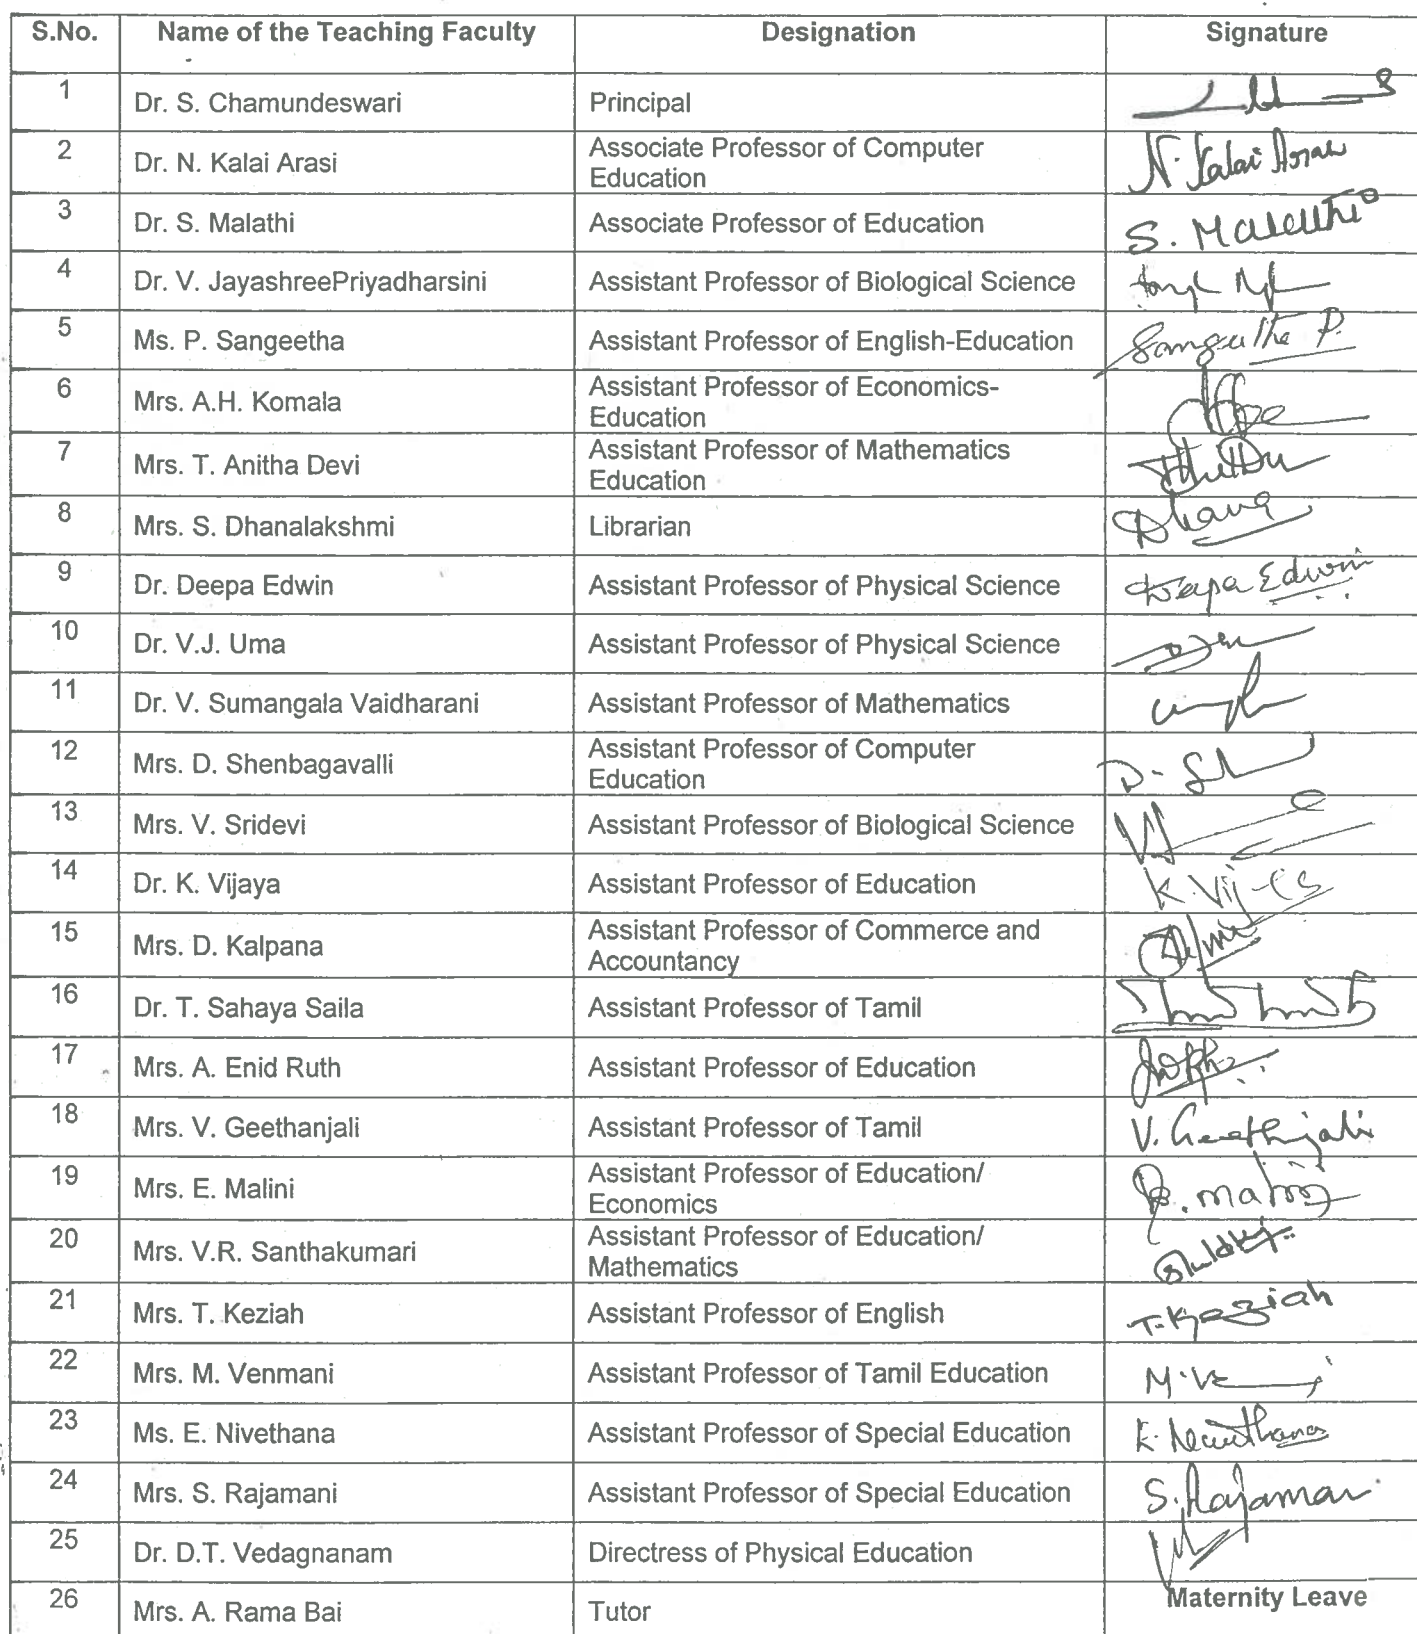 S.No. Name of the Teaching Faculty Designation Signature
1 Dr. S. Chamundeswari Principal
2 Dr. N. Kalai Arasi Associate Professor of Computer Education N. Kalai Arasi
3 Dr. S. Malathi Associate Professor of Education S. Malathi
4 Dr. V. JayashreePriyadharsini Assistant Professor of Biological Science
5 Ms. P. Sangeetha Assistant Professor of English-Education Sangeetha P.
6 Mrs. A.H. Komala Assistant Professor of Economics-Education
7 Mrs. T. Anitha Devi Assistant Professor of Mathematics Education
8 Mrs. S. Dhanalakshmi Librarian Dhana
9 Dr. Deepa Edwin Assistant Professor of Physical Science Deepa Edwin
10 Dr. V.J. Uma Assistant Professor of Physical Science
11 Dr. V. Sumangala Vaidharani Assistant Professor of Mathematics
12 Mrs. D. Shenbagavalli Assistant Professor of Computer Education
13 Mrs. V. Sridevi Assistant Professor of Biological Science
14 Dr. K. Vijaya Assistant Professor of Education
15 Mrs. D. Kalpana Assistant Professor of Commerce and Accountancy
16 Dr. T. Sahaya Saila Assistant Professor of Tamil
17 Mrs. A. Enid Ruth Assistant Professor of Education
18 Mrs. V. Geethanjali Assistant Professor of Tamil V. Geethanjali
19 Mrs. E. Malini Assistant Professor of Education/ Economics E. Malini
20 Mrs. V.R. Santhakumari Assistant Professor of Education/ Mathematics
21 Mrs. T. Keziah Assistant Professor of English T. Keziah
22 Mrs. M. Venmani Assistant Professor of Tamil Education
23 Ms. E. Nivethana Assistant Professor of Special Education E. Nivethana
24 Mrs. S. Rajamani Assistant Professor of Special Education S. Rajamani
25 Dr. D.T. Vedagnanam Directress of Physical Education
26 Mrs. A. Rama Bai Tutor Maternity Leave